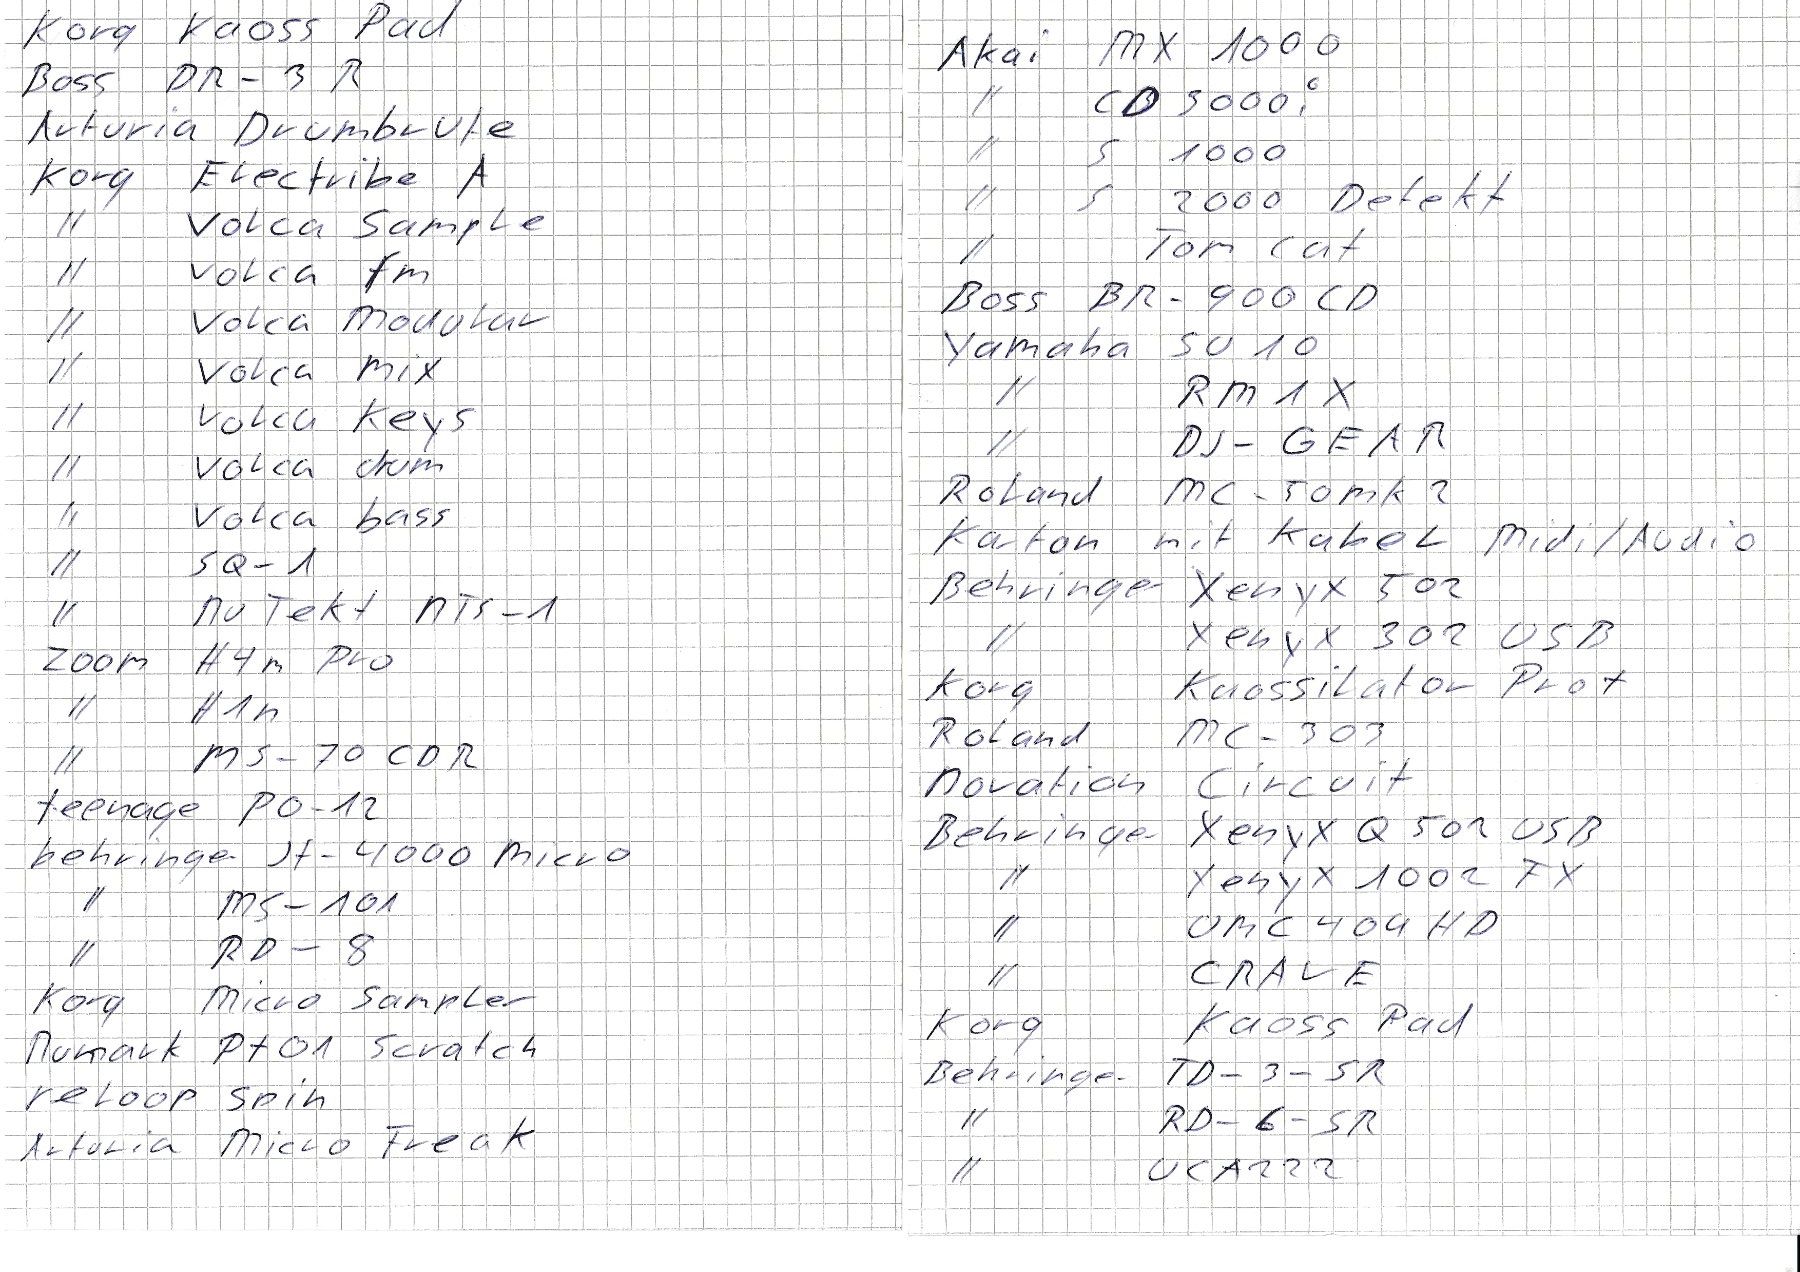 Korg Kaoss Pad
Boss DR-3R
Arturia Drumbrute
Korg Electribe A
" Volca Sample
" Volca fm
" Volca Modular
" Volca mix
" Volca Keys
" Volca drum
" Volca bass
" SQ-1
" Nu Tekt NTS-1
Zoom H4n Pro
" H1n
" MS-70 CDR
teenage PO-12
behringer Jt-4000 Micro
" MS-101
" RD-8
Korg Micro Sampler
Numark Pt01 Scratch
reloop Spin
Arturia Micro Freak
Akai MX 1000
" CD 3000i
" S 1000
" S 2000 Defekt
" Tom Cat
Boss BR-900CD
Yamaha SU 10
" RM1X
" DJ-GEAR
Roland MC-50mk2
Karton mit Kabel Midi/Audio
Behringer Xenyx 502
" Xenyx 302 USB
Korg Kaossilator Pro+
Roland MC-303
Novation Circuit
Behringer Xenyx Q 502 USB
" Xenyx 1002 FX
" UMC 404 HD
" CRAVE
Korg Kaoss Pad
Behringer TD-3-SR
" RD-6-SR
" UCA222